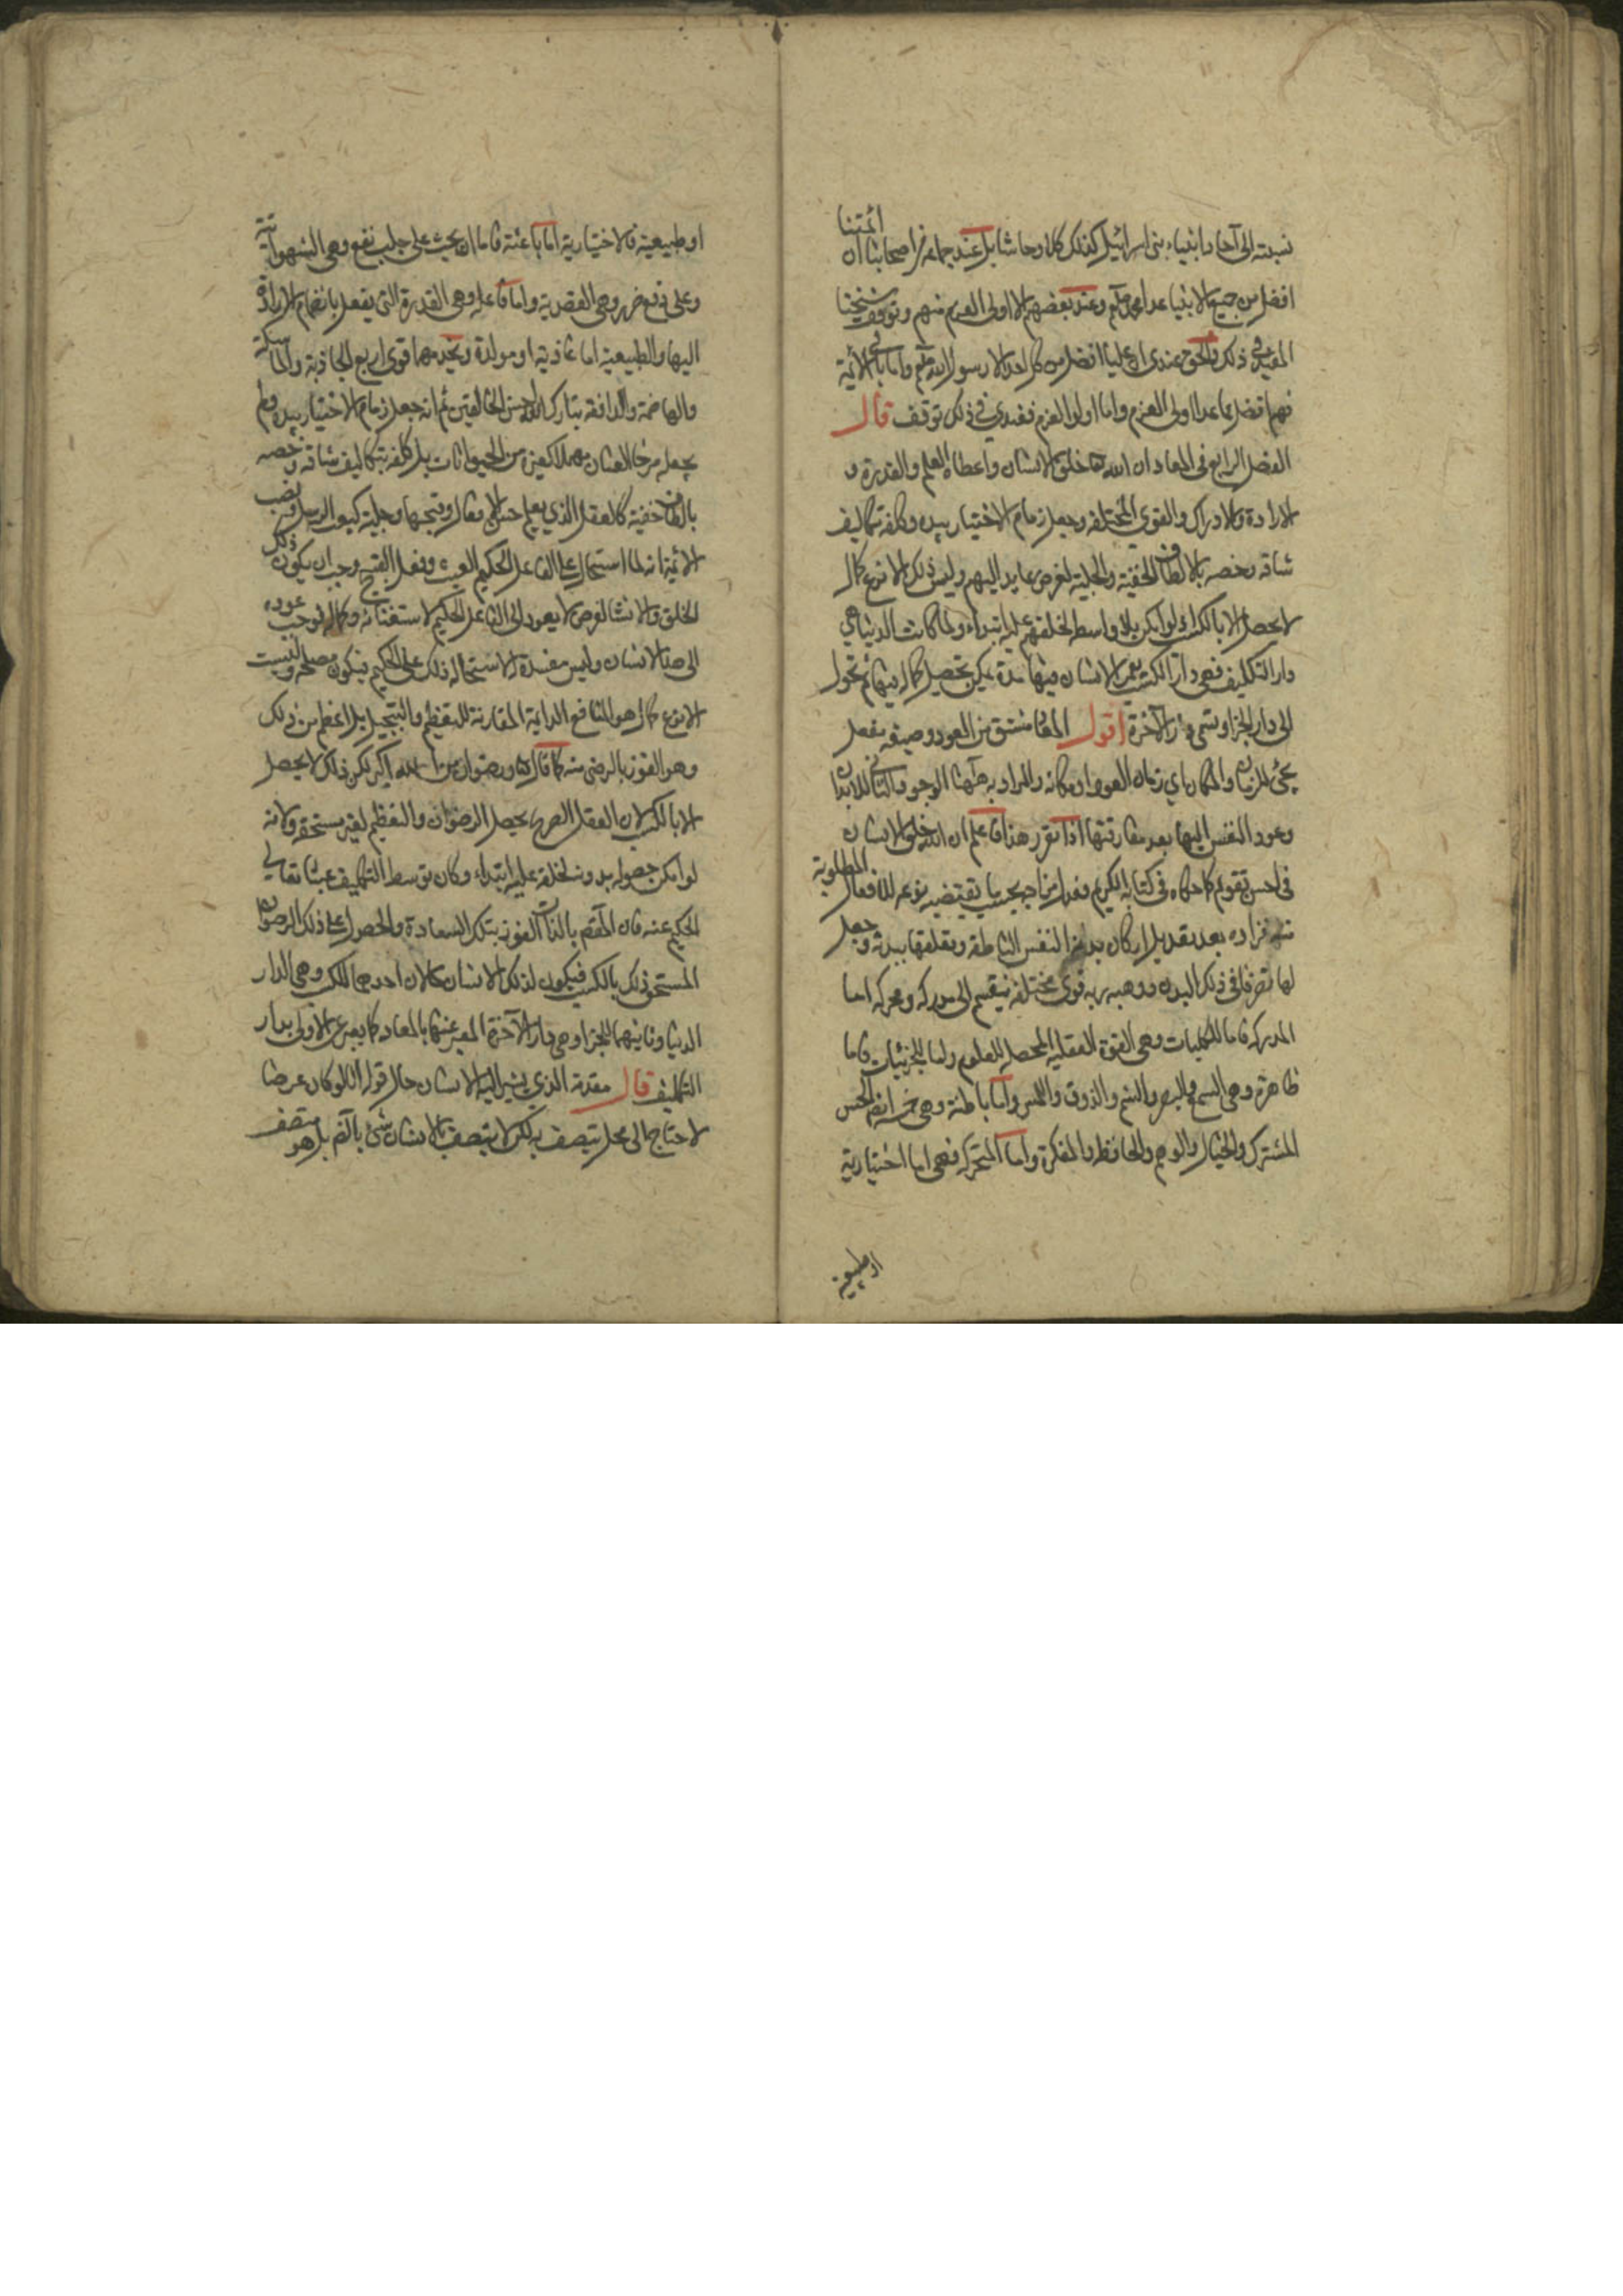 نسبته الى آحاد انبياء بنى اسرائيل كذلك كلا وحاشا بل عند جماعة من اصحابنا ان ائمتنا
افضل من جميع الانبياء عدا محمد صلعم وعند بعضهم الا اولى العزم منهم وتوقف شيخنا
المفيد فى ذلك والحق عندى ان عليا افضل من كل احد الا رسول الله صلعم واما باقى الائمة
فهم افضل مما عدا اولى العزم واما اولوا العزم فعندي فى ذلك توقف قال
الفصل الرابع فى المعاد ان الله خلق الانسان واعطاه العلم والقدرة و
الارادة والادراك والقوى المختلفة وجعل زمام الاختيار بيده وكلفه بتكاليف
شاقه وخصه بالالطاف الخفية والجلية لغرض عايد اليهم وليس ذلك الا نوع كمال
لا يحصل الا بالكسب اذ لو امكن بلا واسطه لخلقهم عليه ابتداء ولما كانت الدنيا هى
دار التكليف فهى دار الكسب يعمر الانسان فيها مدة يمكن تحصيل كماله فيها ثم تحول
الى دار الجزا وتسمى دار الآخرة اقول المعاد مشتق من العود وصيغه مفعل
يجئ للزمان والمكان اي زمان العود او مكانه والمراد به ههنا الوجود الثانى للابدان
وعود النفس اليها بعد مفارقتها اذا تقرر هذا فاعلم ان الله خلق الانسان
فى احسن تقويم كما حكاه فى كتابه الكريم فعدل مزاجه بحسب ما تقتضيه نوعه للافعال المطلوبة
منه فزاده بعد تعديل اركان بدنه النفس الناطقه وتعلقها ببدنه وجعل
لها تصرفا فى ذلك البدن ووهبه ربه قوى مختلفه ينقسم الى مدركه ومحركه اما
المدركه فاما للكليات وهى القوة العقليه المحصله للعلوم واما للجزئيات فاما
ظاهرة وهى السمع والبصر والشم والذوق واللمس واما باطنة وهى خمسة ايضا الحس
المشترك والخيال والوهم والحافظه والمفكرة واما المتحركه فهى اما اختيارية
او طبيعية
او طبيعية فالاختيارية اما باعثة فاما ان يحث على جلب نفع وهى الشهوانية
وعلى دفع ضرر وهى الغضبية واما فاعله وهى القدرة التى يفعل بانضمام الارادة
اليها والطبيعية اما غاذية او مولدة ويخدمهما قوى اربع الجاذبة والماسكة
والهاضمة والدافعة تبارك الله احسن الخالقين ثم انه جعل زمام الاختيار بيده ولم
يجعله مرخا العنان مهملا كغيره من الحيوانات بل كلفه بتكاليف شاقه وخصه
بالطاف خفية كالعقل الذي يعلم حسن الافعال وقبحها وجلية كبعث الرسل ونصب
الائمة انه لما استحال على الفاعل الحكيم العبث وفعل القبيح وجب ان يكون ذلك
الخلق والانشا لغرض لا يعود الى الفاعل الحكيم لاستغنائه وكماله فوجب عوده
الى هذا الانسان وليس مفسدة لاستحالة ذلك على الحكيم فيكون مصلحة وليست
الا نوع كمال هو المنافع الدايمة المقارنة للتعظيم والتبجيل بل اعظم من ذلك
وهو الفوز بالرضى منه كما قال الله ورضوان من الله اكبر لكن ذلك لا يحصل
الا بالكسب لان العقل الصريح يحيل الرضوان والتعظيم لغير مستحقه ولانه
لو امكن حصوله بدونه لخلقه عليه ابتداء وكان توسط التكليف عبثا تعالى
الحكيم عنه فان المقصم بالذات الفوز بتلك السعادة والحصول على ذلك الرضوان
المستحق ذلك بالكسب فيكون لذلك الانسان حالان احدهما للكسب وهى الدار
الدنيا وثانيهما للجزا وهى دار الآخرة المعبر عنها بالمعاد كما يعبر عن الاولى بدار
التكليف قال مقدمة الذي يشير اليه الانسان حال قوله انا لو كان عرضا
لاحتاج الى محل يتصف به لكن لا يتصف بالانسان شئ بالضم بل هو متصف